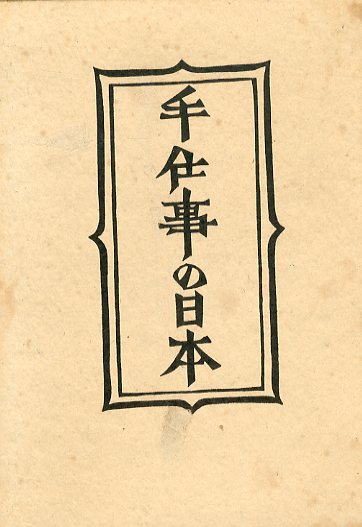 手仕事の日本